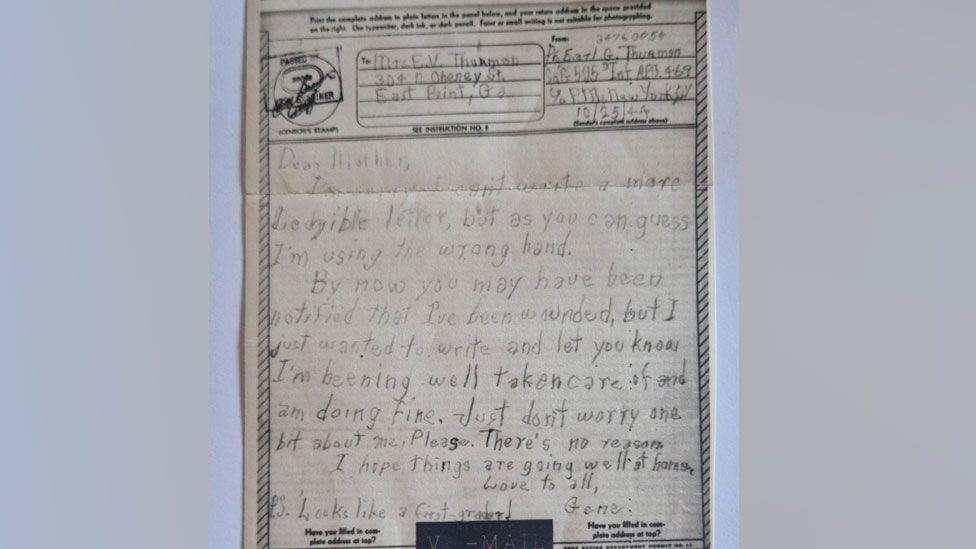 Print the complete address in plain letters in the panel below, and your return address in the space provided
on the right. Use typewriter, dark ink, or dark pencil. Faint or small writing is not suitable for photographing.
PASSED BY
EXAMINER
(CENSOR'S STAMP)
To:
Mrs E.V. Thurmon
304 N Cheney St.
East Point, Ga
SEE INSTRUCTION NO. 2
From:
34760054
Earl G. Thurmon
Inf APO 469
c/o P.M. New York, NY
10/25/44
(Sender's complete address above)
Dear Mother,
I'm I can't write a more
Ledgible letter, but as you can guess
I'm using the wrong hand.
By now you may have been
notified that I've been wounded, but I
just wanted to write and let you know
I'm beening well taken care of and
am doing fine. Just don't worry one
bit about me, Please. There's no reason
I hope things are going well at home.
Love to all,
Gene.
P.S. Looks like a first-grader!
Have you filled in com-
plete address at top?
V···—MAIL
Have you filled in com-
plete address at top?
POST OFFICE DEPARTMENT PERMIT NO.